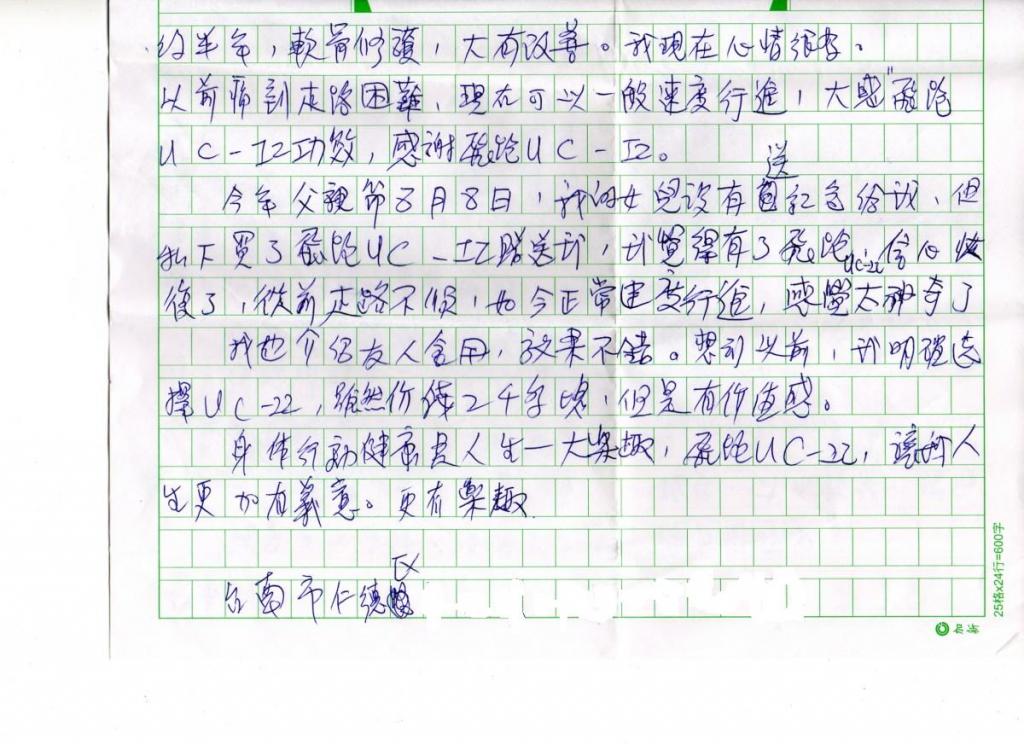 約半年，軟骨修護，大有改善。我現在心情很好。
以前痛到走路困難，現在可以一般速度行進，大感"飛跑
UC-II功效，感謝飛跑UC-II。
送
今年父親節8月8日，我的女兒沒有包紅包給我，但
私下買了飛跑UC-II贈送我，我覺得有了飛跑UC-22信心恢
復了，從前走路不順，如今正常速度行進，感覺太神奇了
我也介紹友人食用，效果不錯。想到以前，我明確選
擇UC-22，雖然價錢2千多塊，但是有價值感。
身体行動健康是人生一大樂趣，飛跑UC-22，讓我人
生更加有義意。更有樂趣
區
台南市仁德
25格x24行=600字